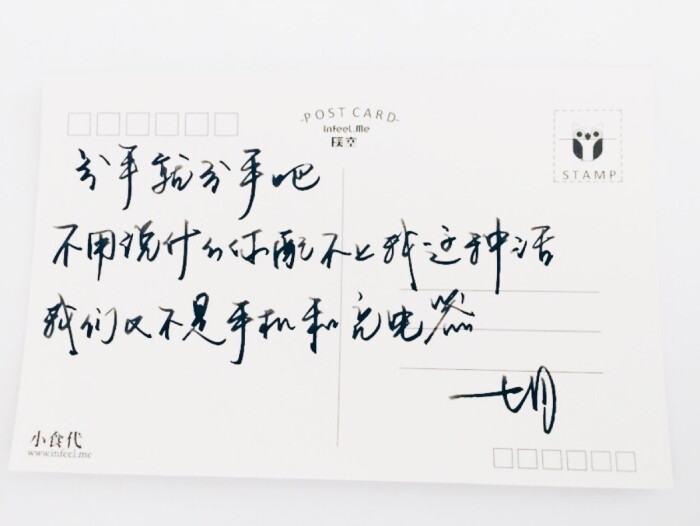 POST CARD
Infeel.Me
璞空
STAMP
分手就分手吧
不用说什么你配不上我这种话
我们又不是手机和充电器
七月
小食代
www.infeel.me